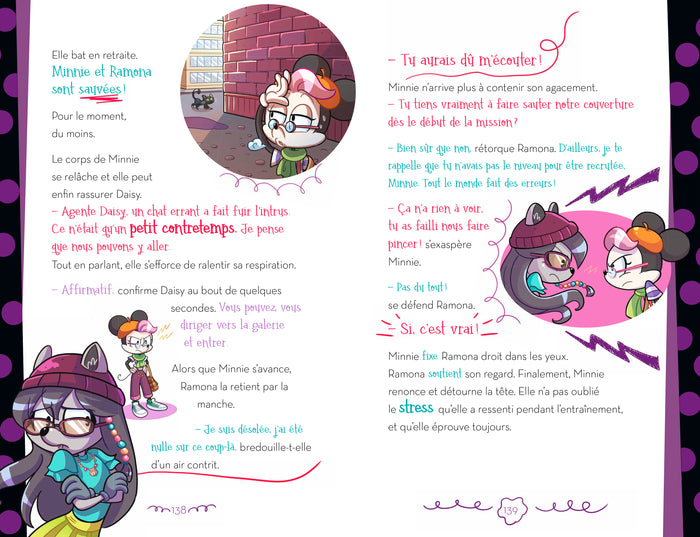 Elle bat en retraite.
Minnie et Ramona
sont sauvées !
Pour le moment,
du moins.
Le corps de Minnie
se relâche et elle peut
enfin rassurer Daisy.
– Agente Daisy, un chat errant a fait fuir l'intrus.
Ce n'était qu'un petit contretemps. Je pense
que nous pouvons y aller.
Tout en parlant, elle s'efforce de ralentir sa respiration.
– Affirmatif, confirme Daisy au bout de quelques
secondes. Vous pouvez vous
diriger vers la galerie
et entrer.
Alors que Minnie s'avance,
Ramona la retient par la
manche.
– Je suis désolée, j'ai été
nulle sur ce coup-là, bredouille-t-elle
d'un air contrit.
138
– Tu aurais dû m'écouter !
Minnie n'arrive plus à contenir son agacement.
– Tu tiens vraiment à faire sauter notre couverture
dès le début de la mission ?
– Bien sûr que non, rétorque Ramona. D'ailleurs, je te
rappelle que tu n'avais pas le niveau pour être recrutée,
Minnie. Tout le monde fait des erreurs !
– Ça n'a rien à voir,
tu as failli nous faire
pincer ! s'exaspère
Minnie.
– Pas du tout !
se défend Ramona.
– Si, c'est vrai !
Minnie fixe Ramona droit dans les yeux.
Ramona soutient son regard. Finalement, Minnie
renonce et détourne la tête. Elle n'a pas oublié
le stress qu'elle a ressenti pendant l'entraînement,
et qu'elle éprouve toujours.
139